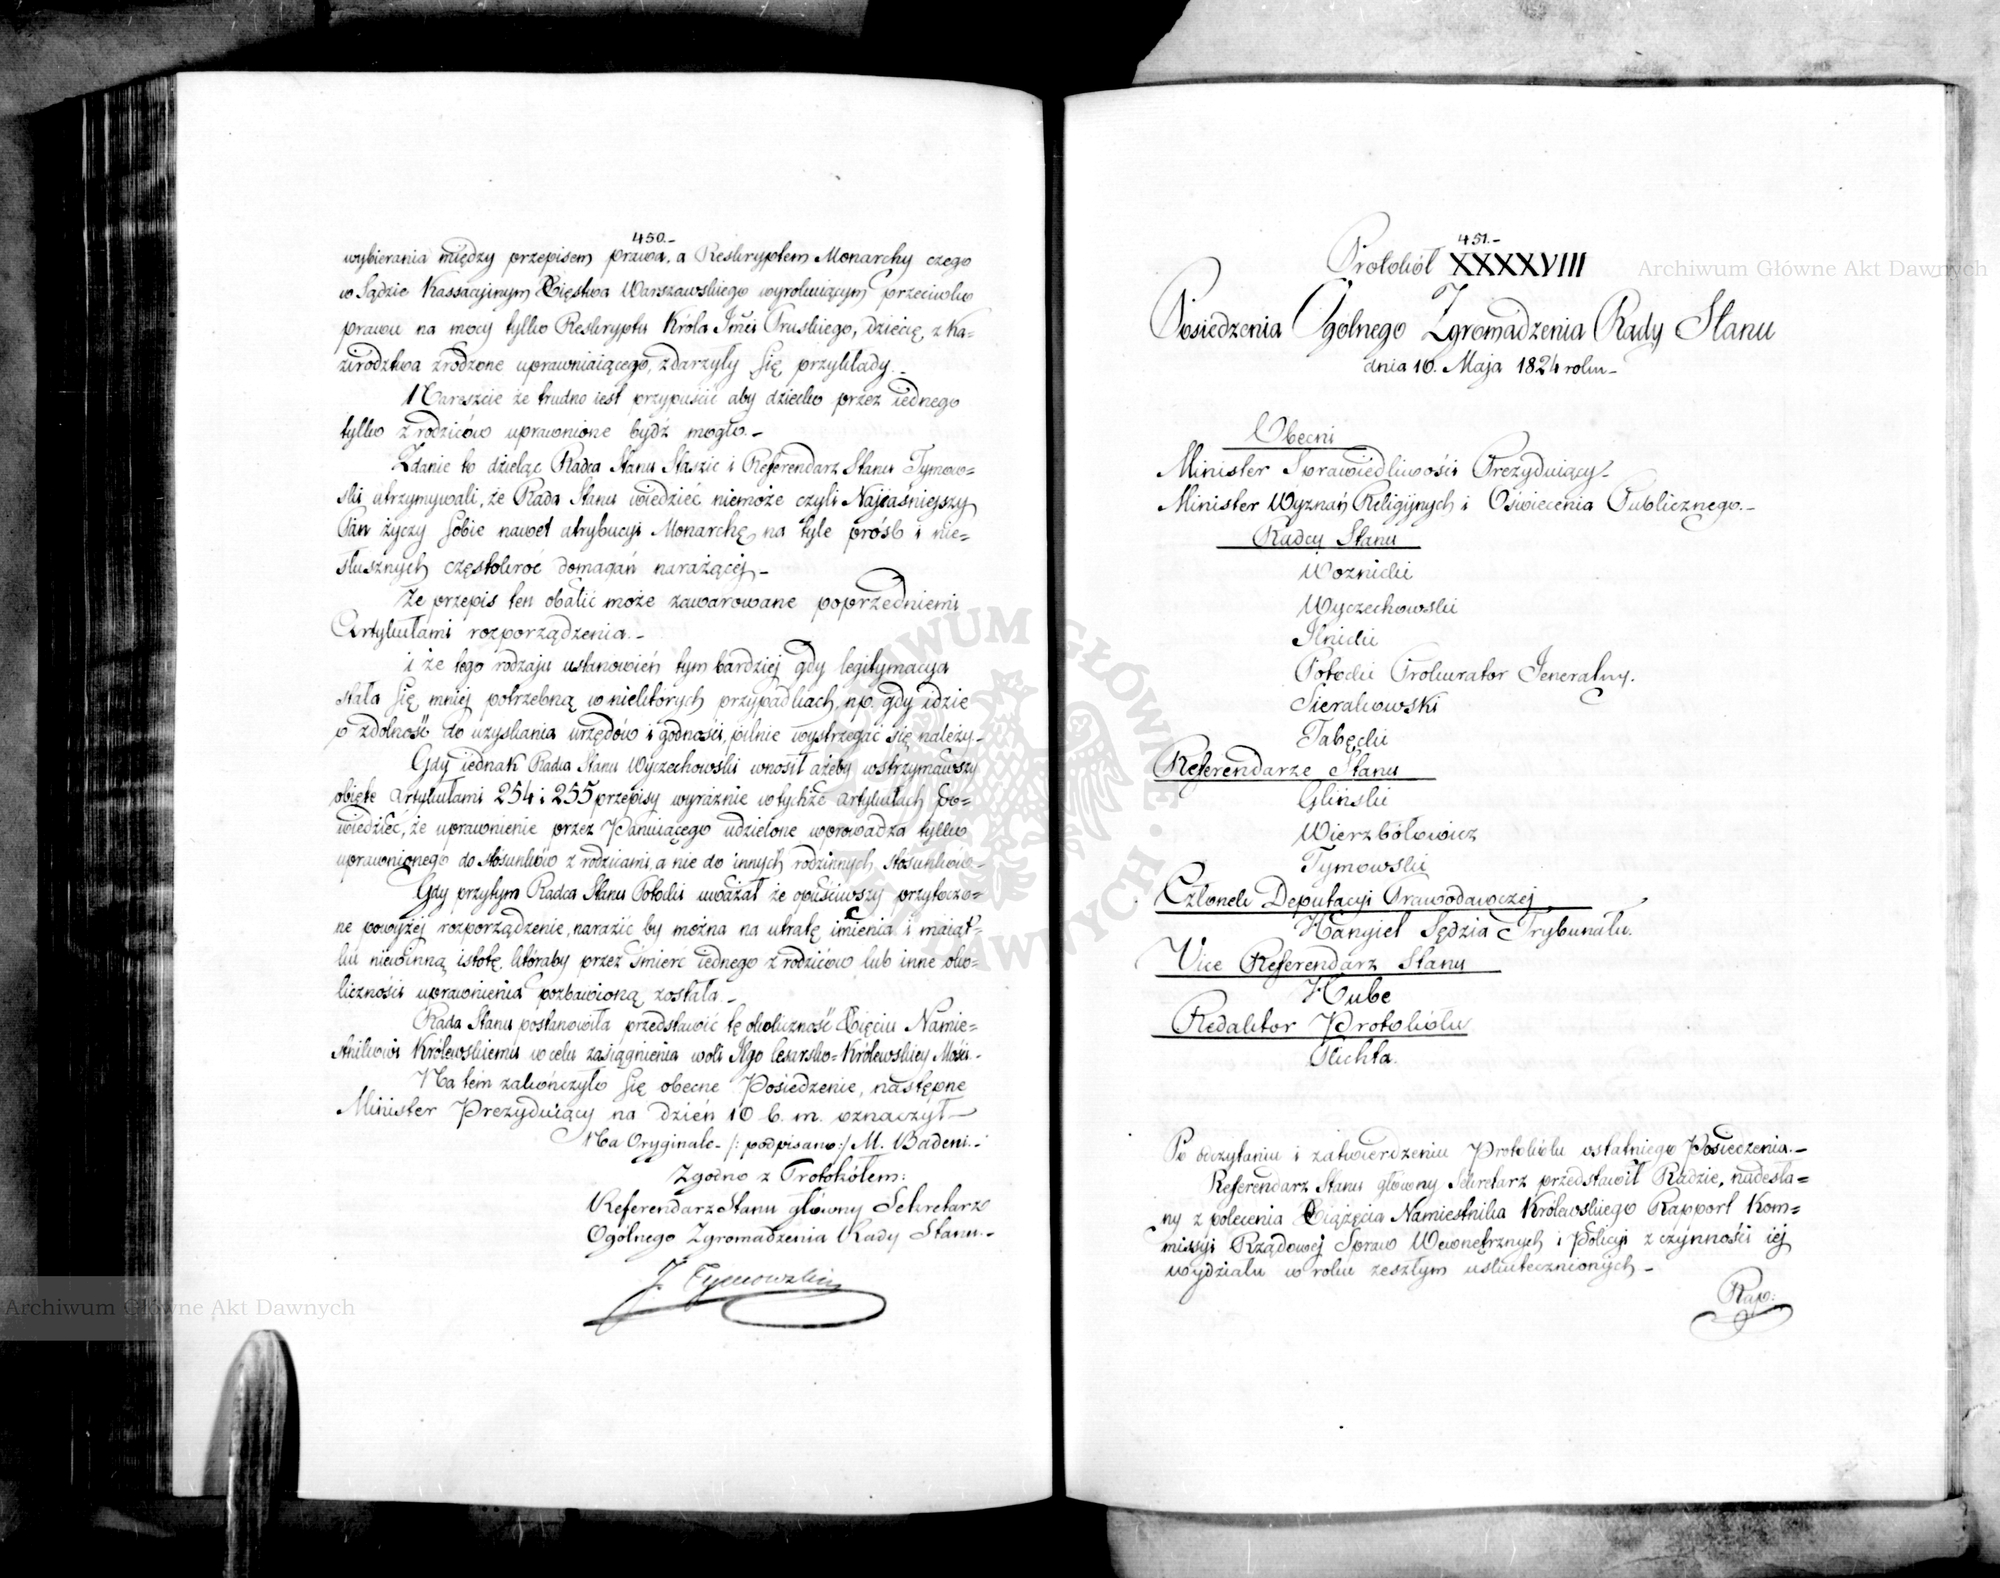 450.-
wybierania między przepisem prawa, a Reskryptem Monarchy czego
w Sądzie Kassacyjnym Xięstwa Warszawskiego wyrokuiącym przeciwko
prawu na mocy tylko Reskryptu Króla Jmci Pruskiego, dziecię z Ka-
zirodztwa zrodzone uprawniaiącego, zdarzyły się przykłady.-
Nareszcie że trudno iest przypuścić aby dziecko przez iednego
tylko z rodziców uprawnione bydź mogło.-
Zdanie to dzieląc Radca Stanu Staszic i Referendarz Stanu Tymow=
ski utrzymywali, że Rada Stanu wiedzieć niemoże czyli Najiaśniejszy
Pan życzy sobie nawet atrybucyi Monarchę na tyle próśb i nie=
słusznych częstokroć domagań narażącéj.-
Że przepis ten obalić może zawarowane poprzedniemi
Artykułami rozporządzenia.-
i że tego rodzaju ustanowień tym bardziej gdy legitymacya
stała się mniej potrzebną w niektórych przypadkach, np. gdy idzie
o zdolność do uzyskania urzędów i godności, pilnie wystrzegać się należy.-
Gdy iednak Radca Stanu Wyczechowski wnosił ażeby wstrzymawszy
obięte artykułami 254 i 255 przepisy wyraźnie w tychże artykułach po=
wiedzieć, że uprawnienie przez Panuiącego udzielone wprowadza tylko
uprawnionego do stosunków z rodzicami, a nie do innych rodzinnych stosunków.-
Gdy przytym Radca Stanu Potocki uważał że opuściwszy przytoczo=
ne powyżej rozporządzenie, narazić by można na utratę imienia i maiąt=
ku niewinną istotę, któraby przez śmierć iednego z rodziców lub inne oko=
liczności uprawnienia pozbawioną została.-
Rada Stanu postanowiła przedstawić tę okoliczność Xięciu Namie=
stnikowi Królewskiemu w celu zasiągnienia woli Jego Cesarsko=Królewskiey Mości.-
Na tém zakończyło się obecne Posiedzenie, następne
Minister Prezyduiący na dzień 10 b. m. oznaczył.-
Na Oryginale- /: podpisano:/ M. Badeni.-
Zgodno z Protokółem:
Referendarz Stanu główny Sekretarz
Ogólnego Zgromadzenia Rady Stanu.-
J. Tymowski
451.-
Protokół XXXXVIII
Posiedzenia Ogólnego Zgromadzenia Rady Stanu
dnia 10. Maja 1824 roku-
Obecni
Minister Sprawiedliwości Prezyduiący.-
Minister Wyznań Religijnych i Oświecenia Publicznego.-
Radcy Stanu
Woznicki
Wyczechowski
Ilnicki
Potocki Prokurator Jeneralny.
Sierakowski
Tabęcki
Referendarze Stanu
Gliński
Wierzbółowicz
Tymowski
Członek Deputacyi Prawodawczej
Hanyiel Sędzia Trybunału.
Vice Referendarz Stanu
Hube
Redaktor Protokółu
Plichta.
Po odczytaniu i zatwierdzeniu Protokółu ostatniego Posiedzenia.-
Referendarz Stanu główny Sekretarz przedstawił Radzie, nadesła=
ny z polecenia Xiążęcia Namiestnika Królewskiego Rapport Kom=
missyi Rządowej Spraw Wewnętrznych i Policyi z czynności iéj
wydziału w roku zeszłym uskutecznionych.-
Rap:
Archiwum Główne Akt Dawnych
Archiwum Główne Akt Dawnych
ARCHIWUM GŁÓWNE AKT DAWNYCH